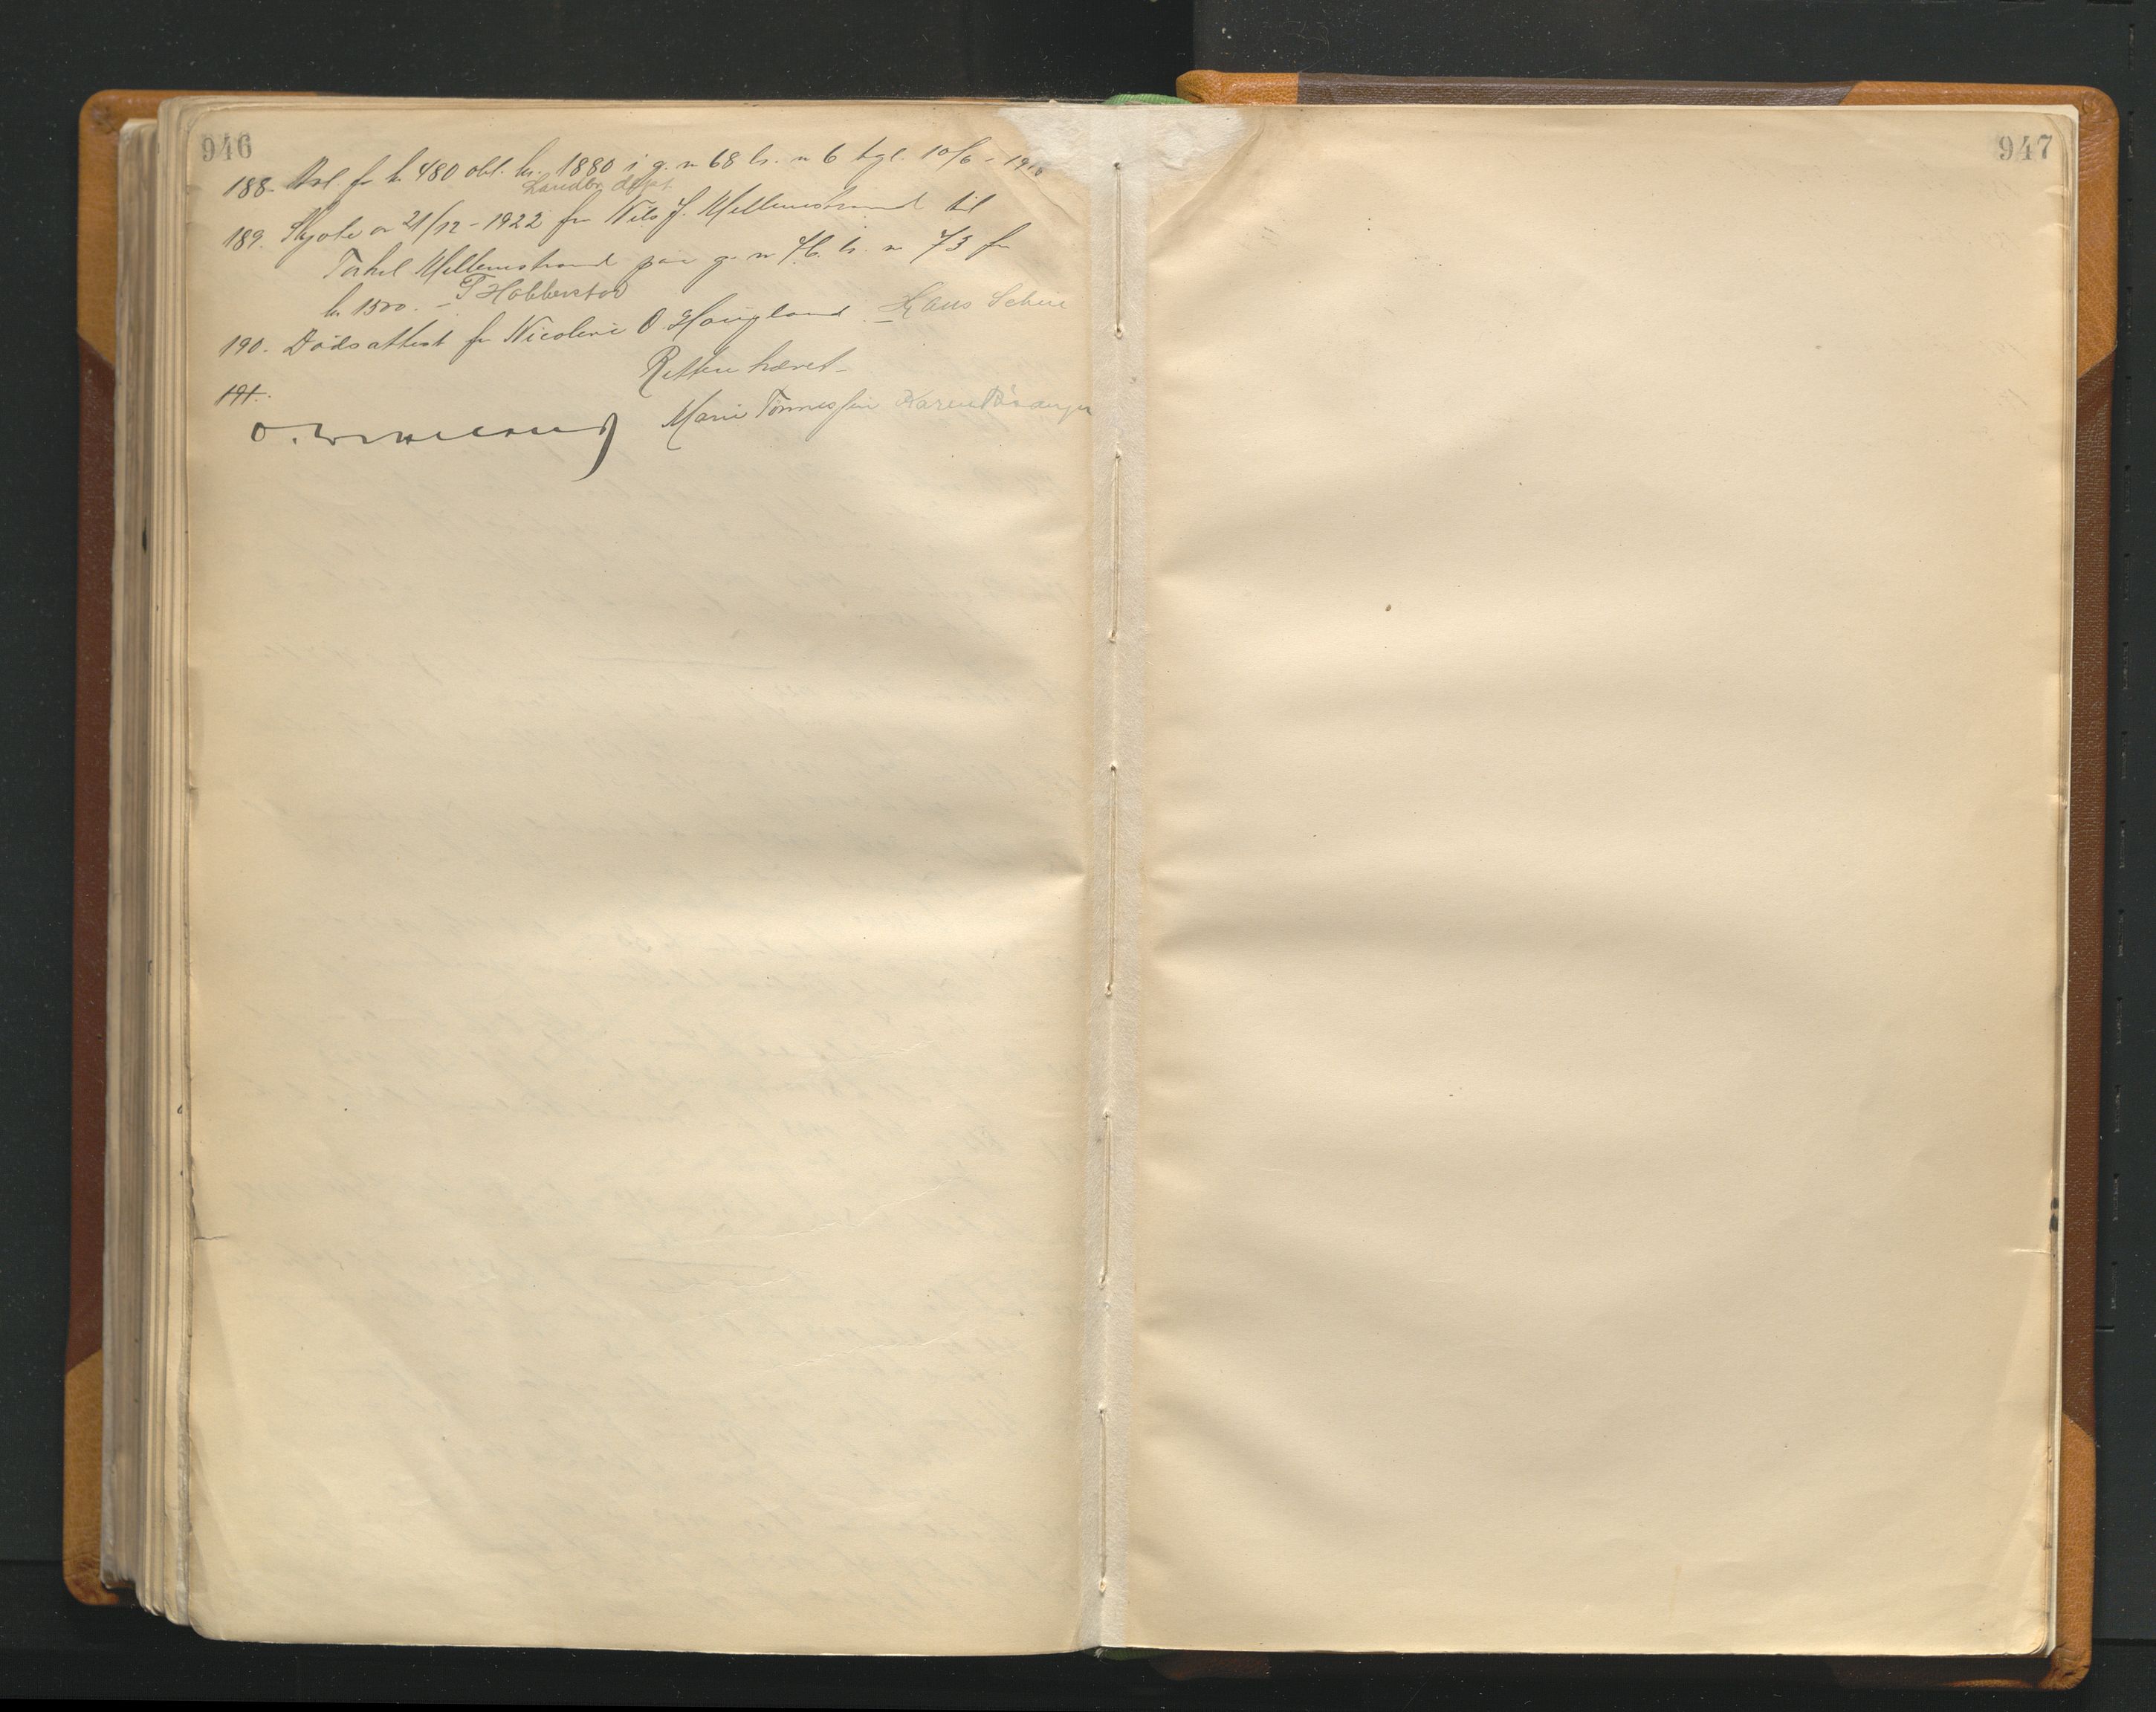 946
188. Avl for kr 480 obl. kr. 1880 i g. n 68 b. n 6 tgl. 10/6 - 1910
Landbr. dept.
189. Skjøte av 21/12 - 1922 fra Nils J. Mellemstrand til
Torkel Mellemstrand paa g. n 76. b. n 73 for
kr 1500. - T Hobberstad
190. Dødsattest for Nicoline O. Haugland. Hans Scheie
Retten hævet -
191.
Marie Tønnessen Karen
947